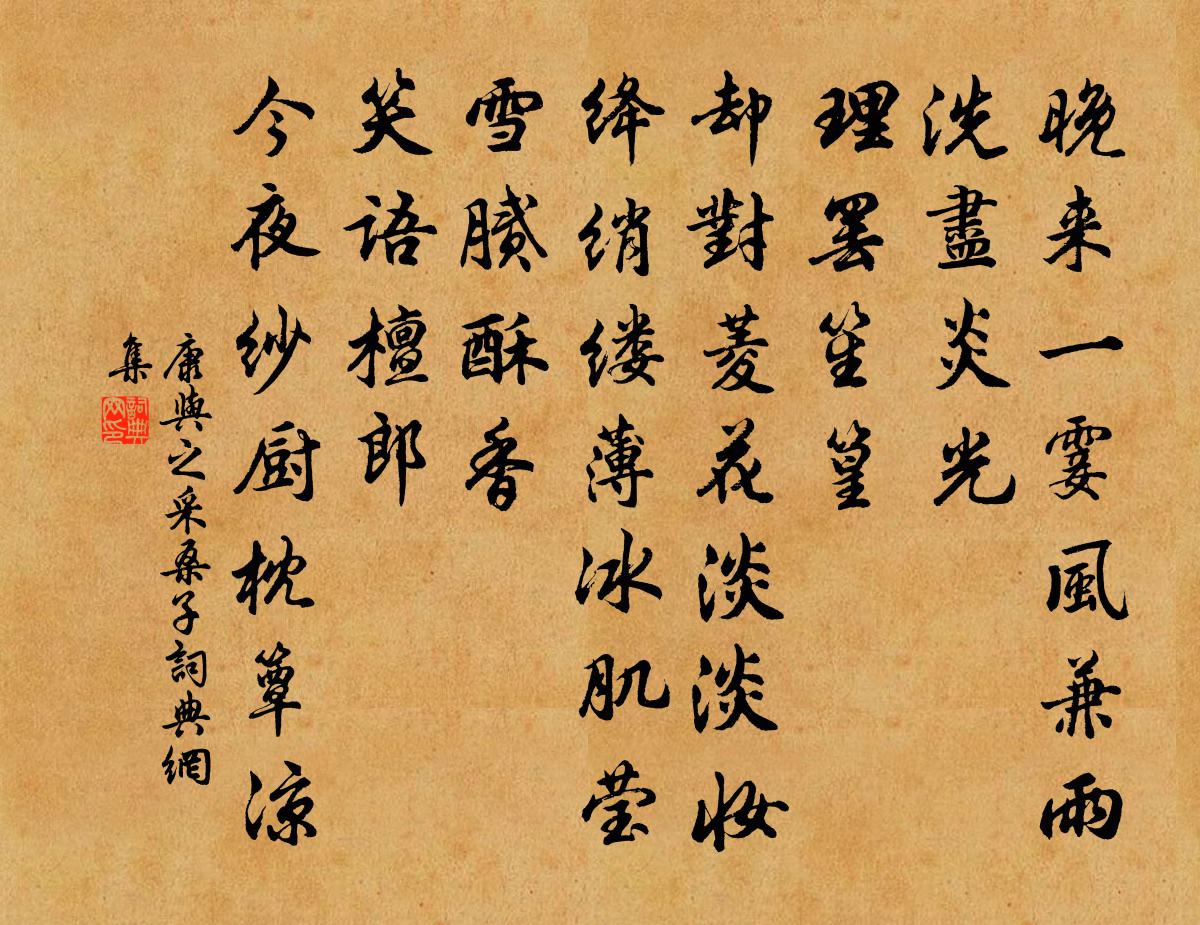 晚来一霎風兼雨
洗盡炎光
理罢笙篁
却對菱花淡淡妆
绛绡缕薄冰肌莹
雪腻酥香
笑語檀郎
今夜纱厨枕簟凉
康與之采桑子詞典網
集
詞典
网印